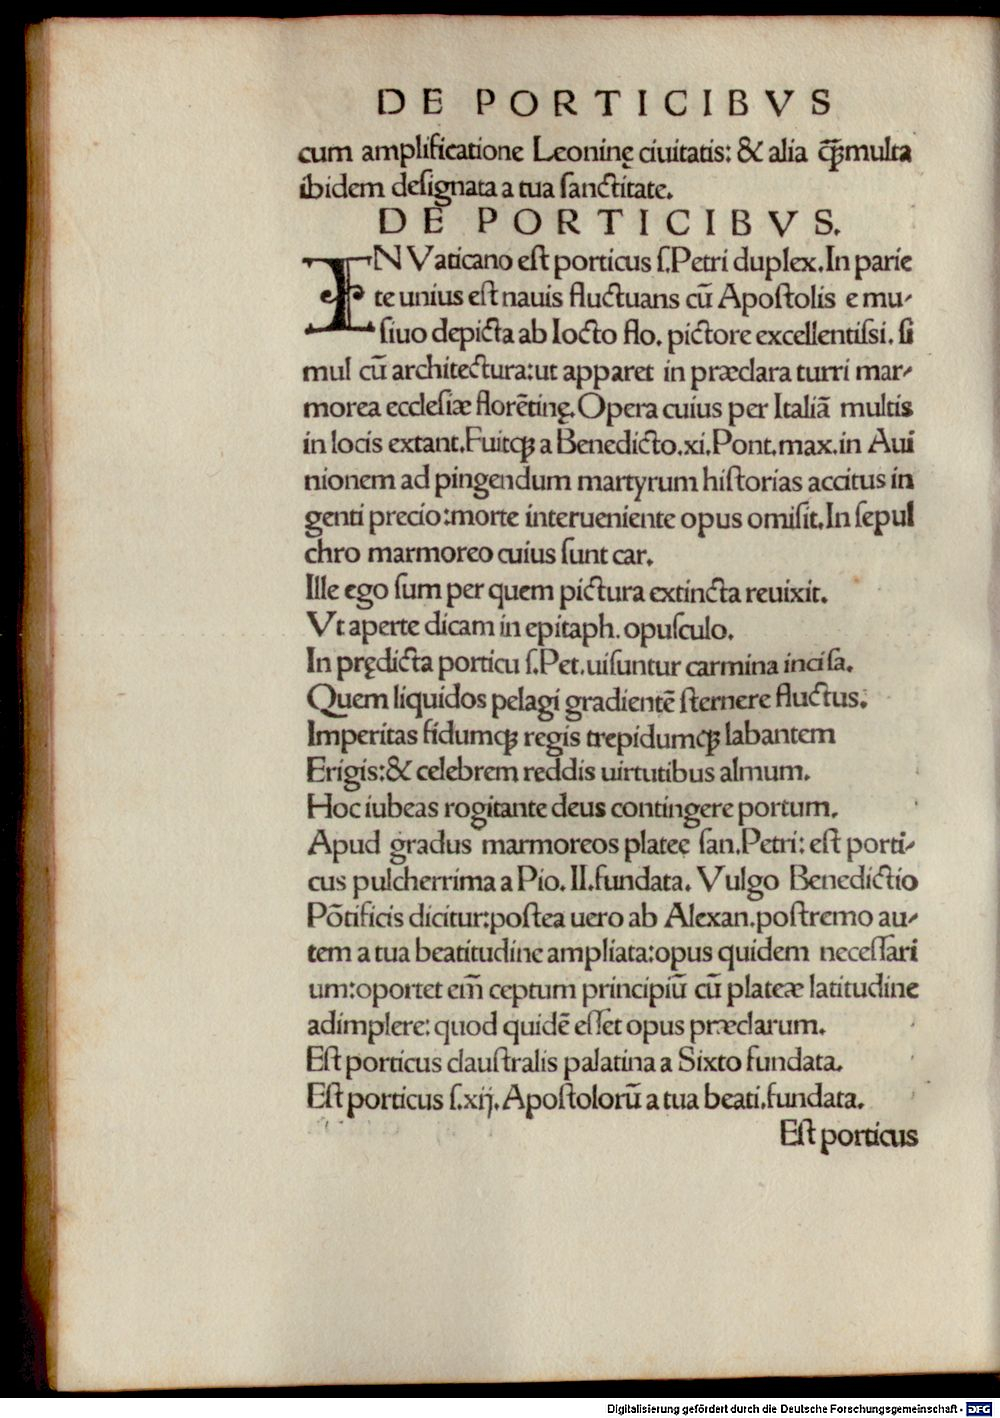 DE PORTICIBVS
cum amplificatione Leoninę ciuitatis: & alia q̄ꝫmulta
ibidem deſignata a tua ſanctitate.
DE PORTICIBVS.
IN Vaticano eſt porticus ſ.Petri duplex.In parie
te unius eſt nauis fluctuans cū Apoſtolis e mu-
ſiuo depicta ab Iocto flo. pictore excellentiſsi. ſi
mul cū architectura:ut apparet in præclara turri mar-
morea eccleſiæ florētinę.Opera cuius per Italiā multis
in locis extant.Fuitqꝫ a Benedicto.xi.Pont.max.in Aui
nionem ad pingendum martyrum hiſtorias accitus in
genti precio:morte interueniente opus omiſit.In ſepul
chro marmoreo cuius ſunt car.
Ille ego ſum per quem pictura extincta reuixit.
Vt aperte dicam in epitaph. opuſculo.
In prędicta porticu ſ.Pet.uiſuntur carmina inciſa.
Quem liquidos pelagi gradientē ſternere fluctus.
Imperitas fidumqꝫ regis trepidumqꝫ labantem
Erigis:& celebrem reddis uirtutibus almum.
Hoc iubeas rogitante deus contingere portum.
Apud gradus marmoreos plateę ſan.Petri: eſt porti-
cus pulcherrima a Pio. II.fundata. Vulgo Benedictio
Pōtificis dicitur:poſtea uero ab Alexan.poſtremo au-
tem a tua beatitudine ampliata:opus quidem neceſſari
um:oportet em̄ ceptum principiū cū plateæ latitudine
adimplere: quod quidē eſſet opus præclarum.
Eſt porticus clauſtralis palatina a Sixto fundata.
Eſt porticus ſ.xij.Apoſtolorū a tua beati.fundata.
Eſt porticus
Digitalisierung gefördert durch die Deutsche Forschungsgemeinschaft - DFG